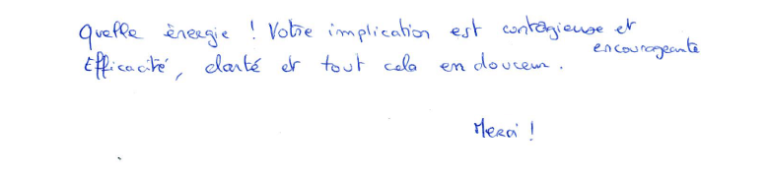 Quelle énergie ! Votre implication est contagieuse et encourageante
Efficacité, clarté et tout cela en douceur.
Merci !